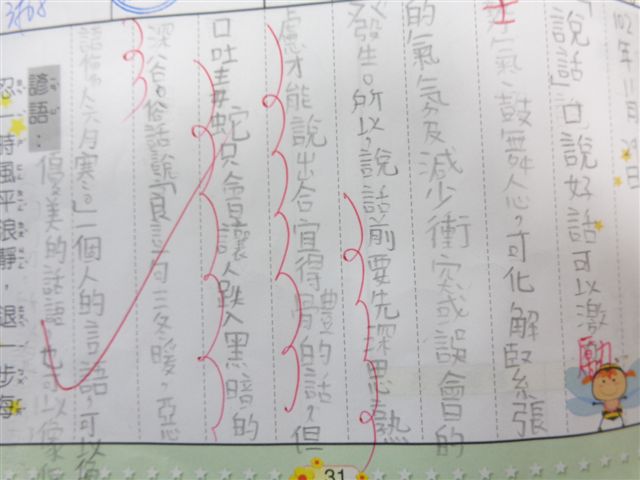 102年11月29日
「說話」口說好話可以激勵
士氣、鼓舞人心,可化解緊張
的氣氛及減少衝突或誤會的
發生。所以,說話前要先深思熟
慮才能說出合宜得體的話,但
口吐毒蛇只會讓人跌入黑暗的
深谷。俗話說「良言可三冬暖,惡
語傷人六月寒。」一個人的言語,可以
優美的話語 也可以像
諺語:
忍一時風平浪靜,退一步海
31